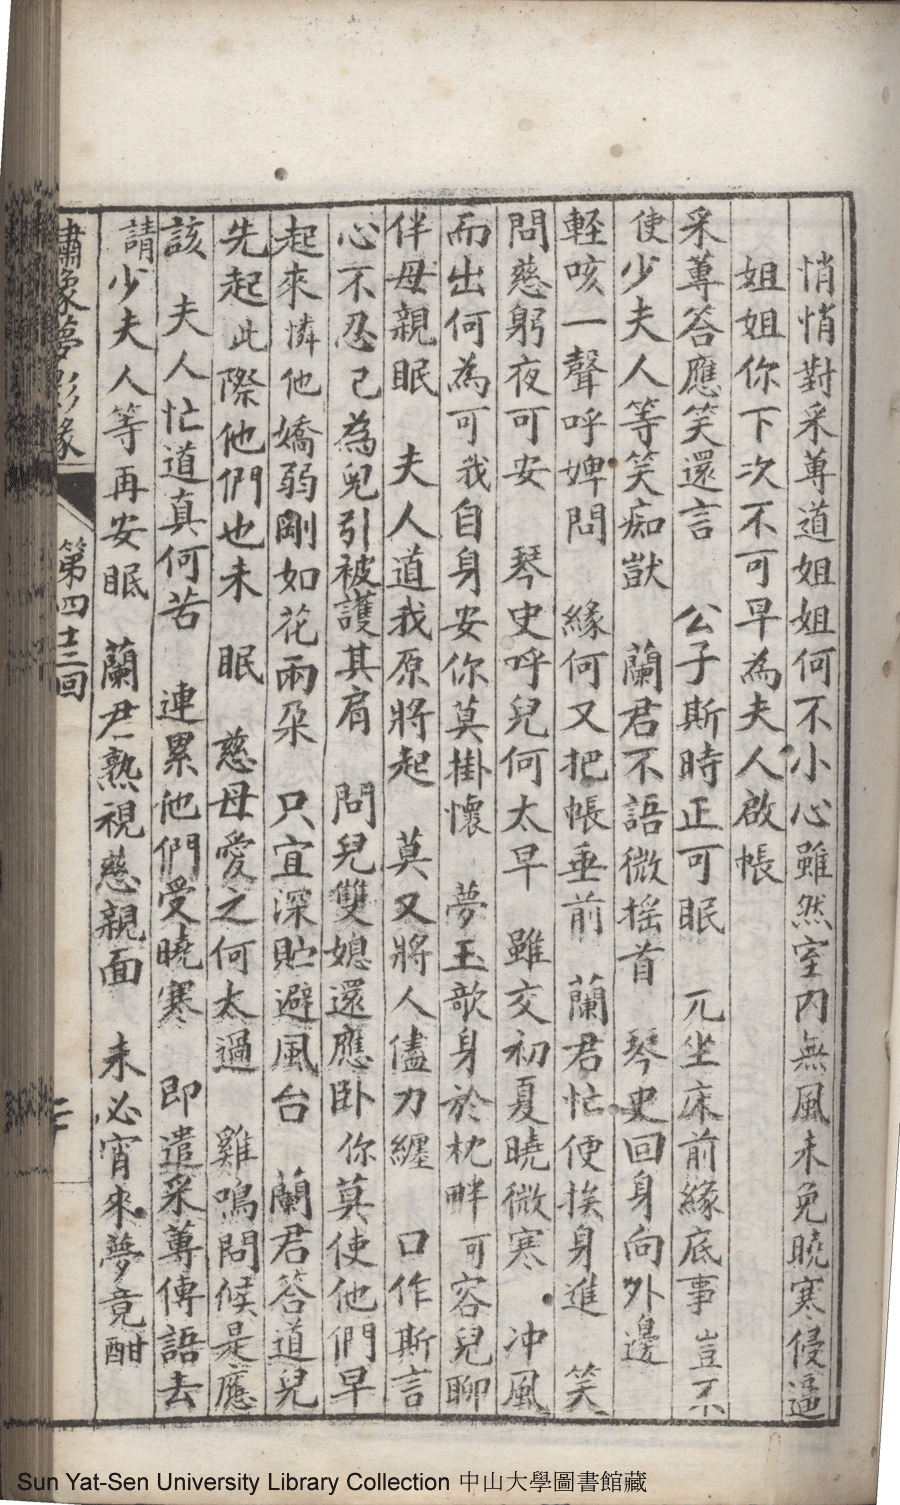 悄悄對采蓴道姐姐何不小心雖然室內無風未免曉寒侵逼
姐姐你下次不可早為夫人啟帳
采蓴答應笑還言　公子斯時正可眠　兀坐床前緣底事　豈不
使少夫人等笑痴獃　蘭君不語微摇首　琴史回身向外邊
輕咳一聲呼婢問　緣何又把帳垂前　蘭君忙便挨身進　笑
問慈躬夜可安　琴史呼兒何太早　雖交初夏曉微寒　冲風
而出何為可　我自身安你莫掛懷　夢玉歆身於枕畔　可容兒聊
伴母親眠　夫人道我原將起　莫又將人儘力纏　口作斯言
心不忍　己為兒引被護其肩　問兒雙媳還應卧　你莫使他們早
起來憐他嬌弱剛如花兩朶　只宜深貯避風台　蘭君答道兒
先起此際他們也未眠　慈母愛之何太過　雞鳴問候是應
該　夫人忙道真何苦　連累他們受曉寒　即遣采蓴傳語去
請少夫人等再安眠　蘭君熟視慈親面　未必宵來夢竟酣
繡像夢影緣　第四十三回
Sun Yat-Sen University Library Collection 中山大學圖書館藏